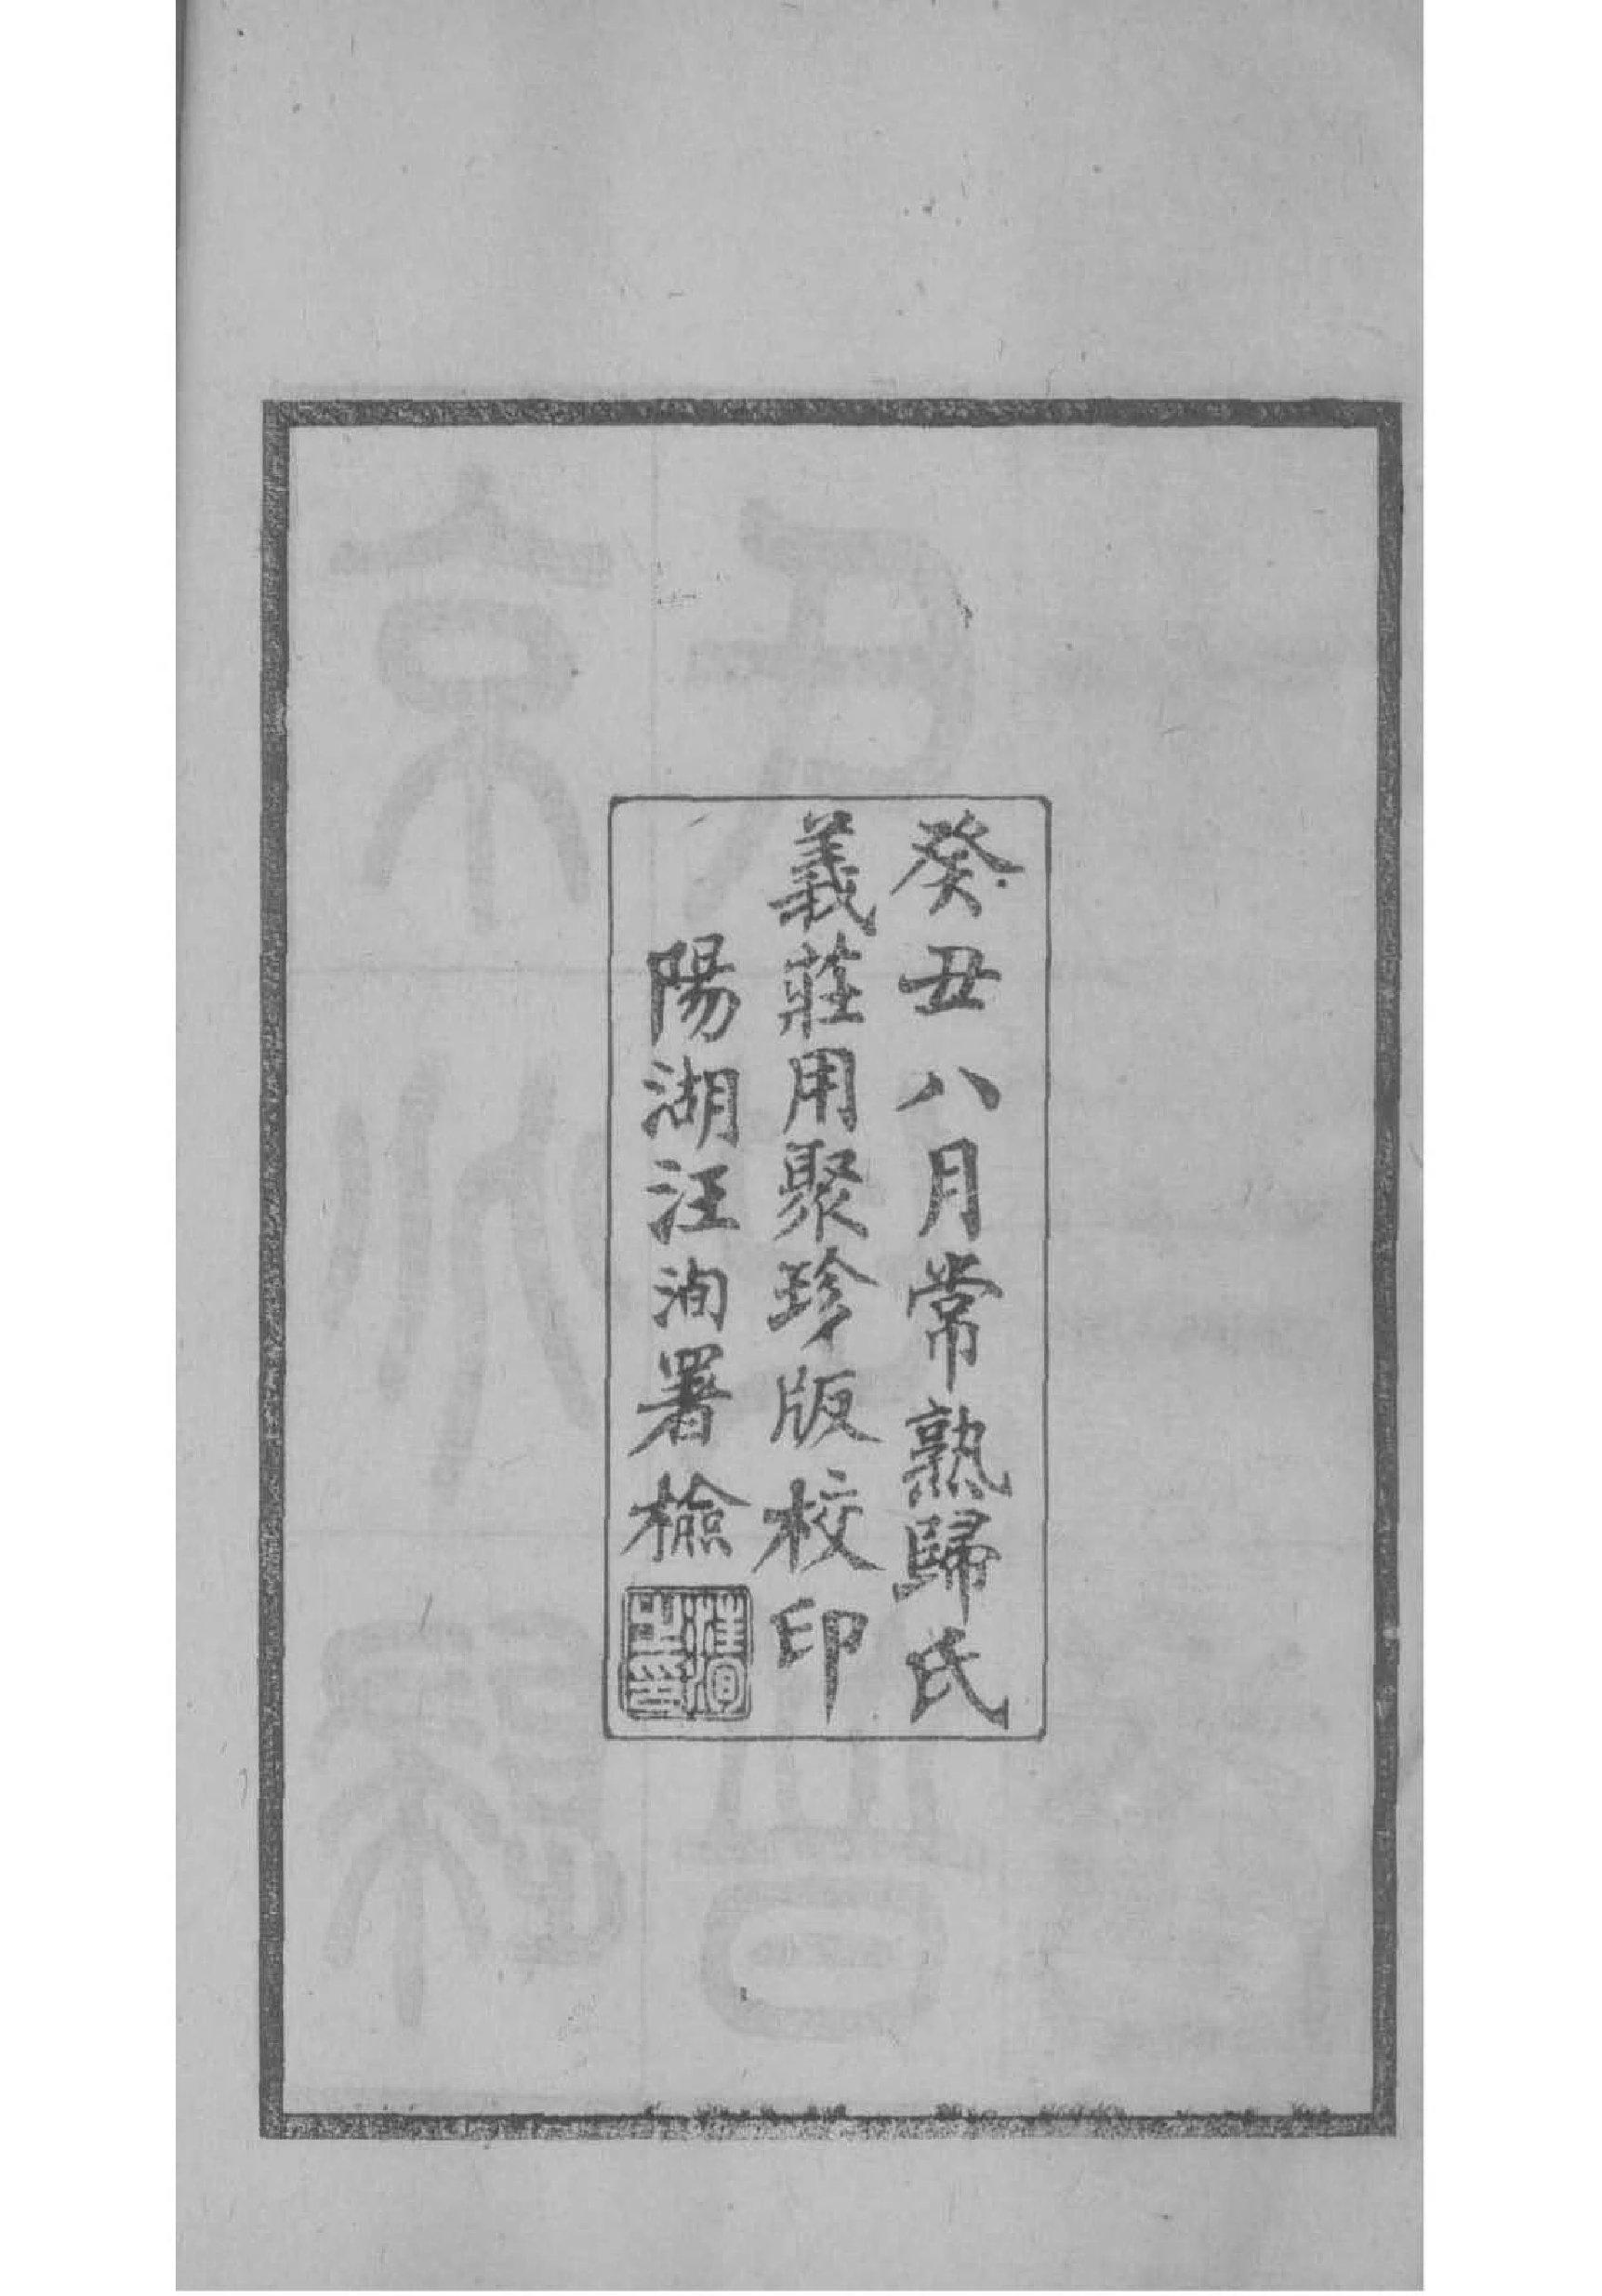 癸丑八月常熟歸氏
義莊用聚珍版校印
陽湖汪洵署檢
汪洵之印